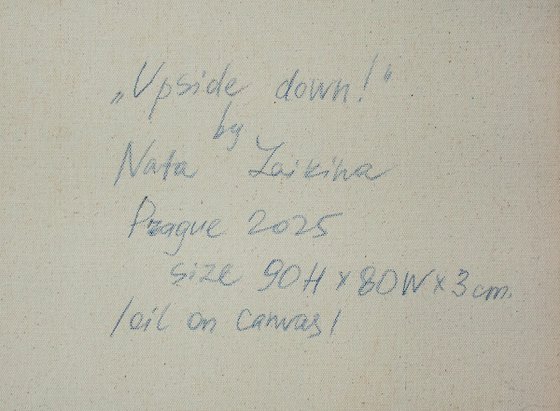 „Upside down!“
by
Nata Zaikina
Prague 2025
size 90H x 80W x 3 cm.
/oil on canvas/